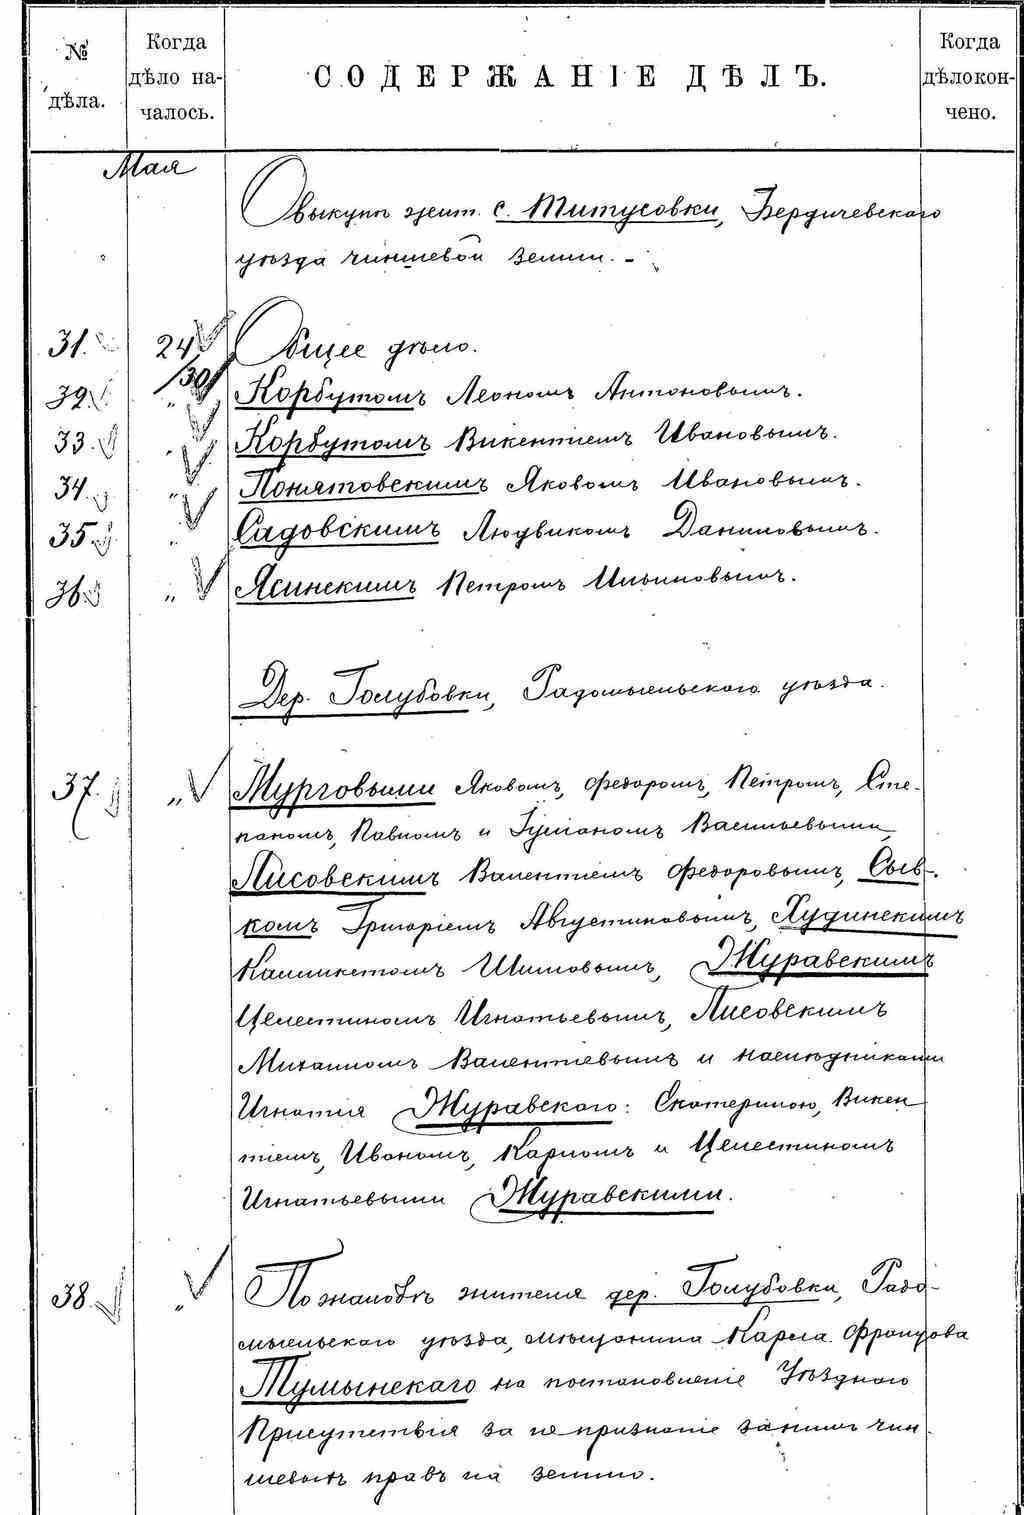 № дѣла.
Когда дѣло на- чалось.
СОДЕРЖАНІЕ ДѢЛЪ.
Когда дѣло кон- чено.
Мая
О выкупѣ жит. с. Титусовки, Бердичевскаго
уѣзда чиншевой земли. -
31. 24/30 Общее дѣло.
32. " Корбутомъ Леономъ Антоновымъ.
33. " Корбутомъ Викентіемъ Ивановымъ.
34 " Понятовскимъ Яковомъ Ивановымъ.
35. " Садовскимъ Людвикомъ Даниловымъ.
36 " Ясинскимъ Петромъ Ильиновымъ.
Дер. Голубовки, Радомысльскаго уѣзда.
37. " Мурговыми Яковомъ, Федоромъ, Петромъ, Сте-
паномъ, Павломъ и Васильевыми,
Лисовскимъ Валентіемъ Федоровымъ, Сыв-
комъ Григоріемъ Августиновымъ, Худинскимъ
Каликстомъ Шимовымъ, Журавскимъ
Целестиномъ Игнатьевымъ, Лисовскимъ
Михаиломъ Валентіевымъ и наслѣдниками
Игнатія Журавскаго: Екатериною, Викен
тіемъ, Иваномъ, Карломъ и Целестиномъ
Игнатьевыми Журавскими.
38 " По жалобѣ жителя дер. Голубовки, Радо-
мысльскаго уѣзда, мѣщанина Карла Францова
Тумынскаго на постановленіе Уѣзднаго
Присутствія за не признаніе за нимъ чин-
шевыхъ правъ на землю.